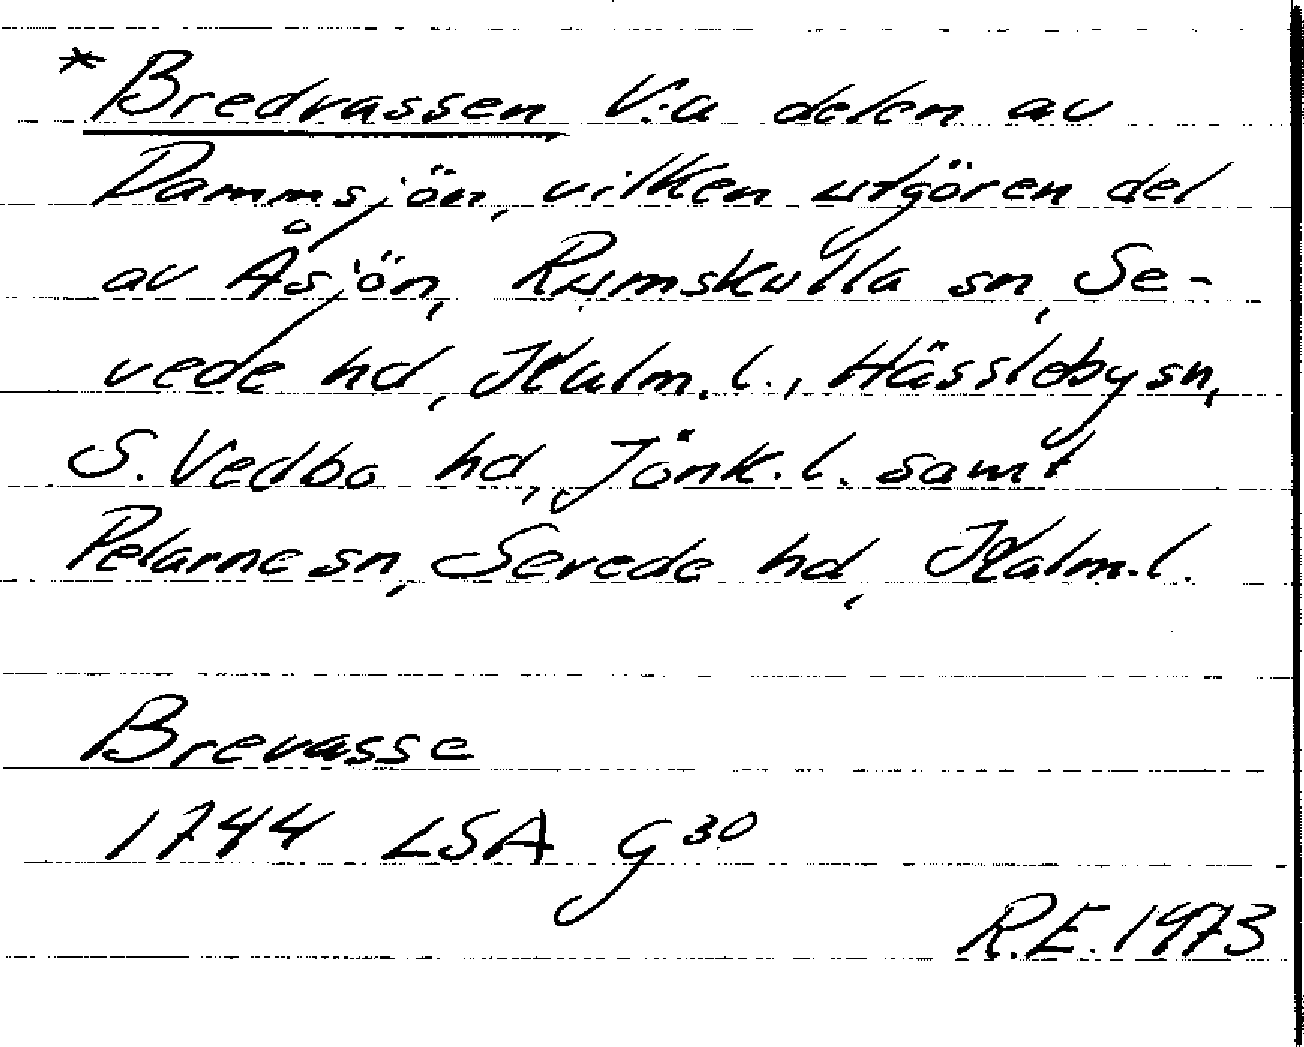 * Bredvassen V:a delen av
Dammsjön, vilken utgören del
av Åsjön, Rumskulla sn, Se-
vede hd, Kalm. l., Hässleby sn,
S. Vedbo hd, Jönk. l. samt
Pelarne sn, Sevede hd, Kalm. l.
Brevasse
1744 LSA G 30
R.E. 1973